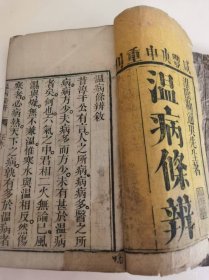 庚申重
溫病條辨
溫病條辨敘
昔淳于公有言人之所病病病多醫之所
病病方少夫病多而方少未有甚於溫病
者矣何也六氣之中君相二火無論已風
濕與燥無不兼溫惟寒水與溫相反然傷
寒者必病熱天下之病孰有多於溫病者